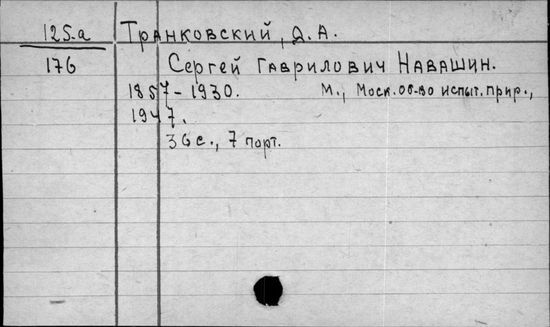 125.а Транковский, Д. А.
176 Сергей Гаврилович Навашин.
1857-1930. М., Моск. об-во испыт. прир.,
1947.
36 с., 7 порт.